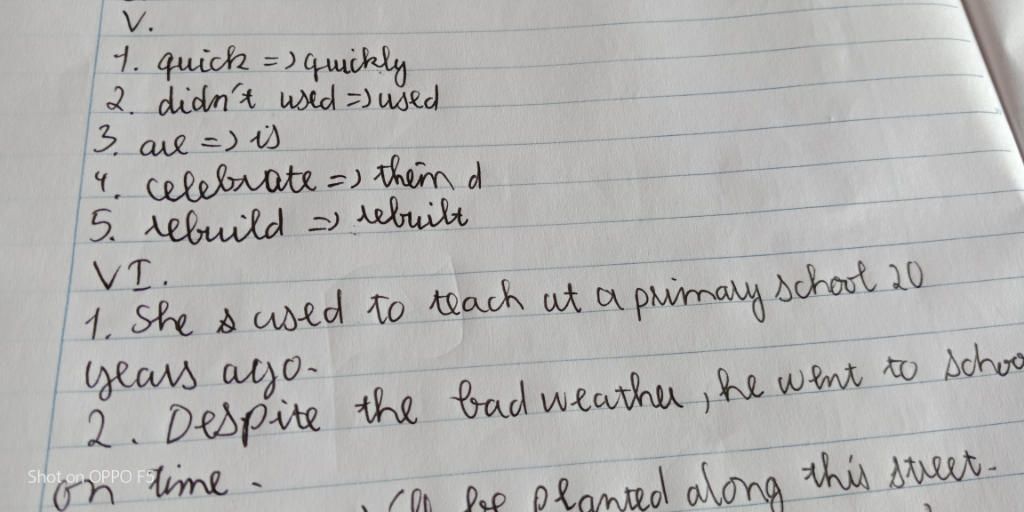 V.
1. quick => quickly
2. didn't used => used
3. are => is
4. celebrate => them d
5. rebuild => rebuilt
VI.
1. She used to teach at a primary school 20
years ago.
2. Despite the bad weather, he went to schoo
on time.
be planted along this street.
Shot on OPPO F5